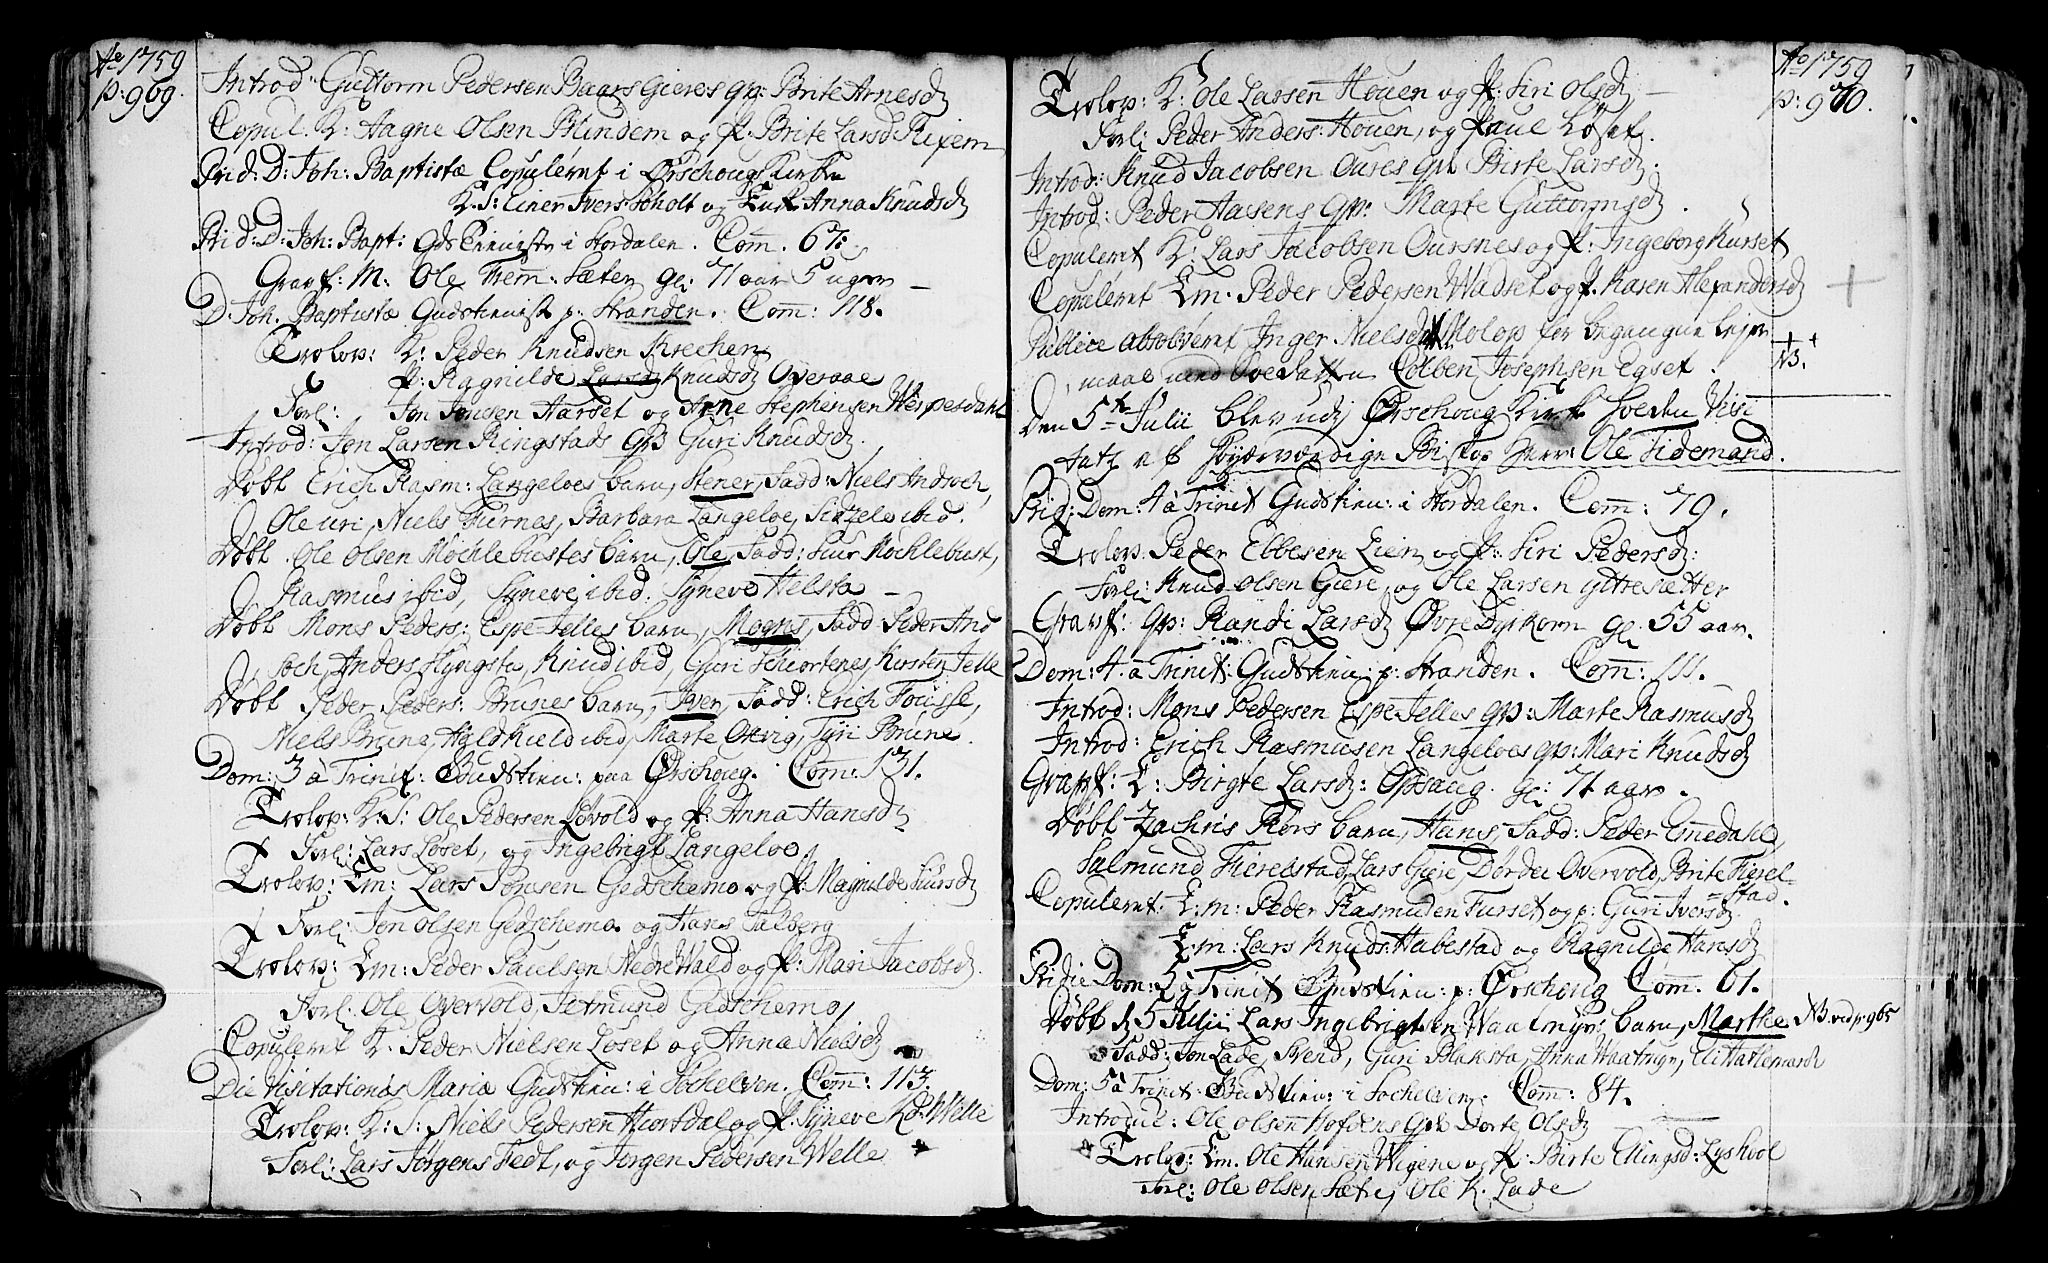 Ao 1759
p: 969.
Introd: Guttorm Pedersen Baars Gieres qp: Brite Arnesd
Copul. K: Aagne Olsen Blindem og p: Brite Larsd Rixem
Prid: D: Joh: Baptistæ Copuleret i Ørschougs Kirke
K. S: Einer Ivers: Scholt og Anna Knudsd
Prid: D: Joh: Bapt: Gds tienniste i Stordalen. Com. 67.
Gravf: M: Ole Frem: Sæter gl: 71 aar 5 uger
D. Joh. Baptistæ Gudstienist p: Stranden. Com: 118.
Trolov: K: Peder Knudsen Kreken
p: Ragnilde Larsd Knudsd Overaae
Forl: Jon Jonsen Aarset og Arne Stephensen Werpesdahl
Introd: Jon Larsen Ringstads qp Guri Knudsd.
Døbt Erich Rasm: Langeloes barn, Stener, Fadd: Niels Andsoch,
Ole uri, Niels Furnes, Barbara Langeloe, Sidzele ibid.
Døbt. Ole Olsen Mochlebustes barn, Ole, Fadd: Siur Mochlebust,
Rasmus ibid, Syneve ibid. Syneve Helsta
Døbt Mons Peders: Espe-Jelles barn, Mogns, Fadd: Peder And
soch, Anders Hyngsta, Knud ibid, Guri Schiortenes, Kirsten Jelle
Døbt Peder Peders: Brunes barn, Iver, Fadd: Erich Fousse,
Niels Brune, ibid, Marte Ottrig, Tyri Brune.
Dom: 3 à Trinit: Gudstien: paa Ørschoug. Com: 131.
Trolov: K: S: Ole Pedersen Løvold og p: Anna Hansd
Forl: Lars Løset, og Ingebrigt Langeloe
Trolov: Em: Lars Jonsen Gedschemo og p: Magnilde Siursd
Forl: Jon Olsen Gedschemo og Hans Salberg
Trolov: Em: Peder Paulsen Nedre Wald og p: Mari Jacobsd.
Forl: Ole Overvold, Jetmund Gedschemo,
Copuleret K: Peder Nielsen Løset og Anna Nielsd
Die Visitationis Mariæ Gudstien: i Søchelven. Com: 113.
Trolov: K: S: Niels Pedersen Hiortdal og p: Syneve Welle
Forl: Lars Jørgens Fedt, og Jørgen Pedersen Welle
Ao 1759
p: 970.
Trolov: K: Ole Larsen Houen og p: Siri Olsd
Forl: Peder Anders: Houen, og Paul Løset.
Introd: Knud Jacobsen Oures qp Birte Larsd.
Introd: Peder Aasens qp: Marte Guttormsd.
Copuleret K: Lars Jacobsen Oursnes og p: Ingeborg Kurset
Copuleret Em: Peder Pedersen Wadset og p: Karen Alexandersd
Publice absolveret Inger Nielsd Molop for begangne lejer
maal med Colben Josephsen Egset.
NB.
Den 5te Julii blev udj Ørschoug Kirke holden Visi
tatz af Høyærværdige Biskop Herr Ole Tidemand.
Prid: Dom: 4 à Trinit Gudstien: i Stordalen. Com: 79.
Trolov: Peder Ebbesen Lien og p: Siri Pedersd:
Forl: Knud Olsen Giere, og Ole Larsen ytresætter
Gravf: qp: Randi Larsd Øvre Dyrkorn gl. 55 aar.
Dom: 4. à Trinit: Gudstien: p: Stranden. Com: 111.
Introd: Mons Pedersen Espe-Jelles qp: Marte Rasmusd
Introd: Erich Rasmusen Langeloes qp: Mari Knudsd
Gravf: E: Birgte Larsd: Opsaug. gl: 71 aar.
Døbt Zachris Kors barn, Hans, Fadd: Peder Emedahl,
Salmund Fierelstad, Lars Giere, Dordei Overvold, Brite Fierel-
stad.
Copuleret: E: m: Peder Rasmusen Furset og p: Guri Iversd
E: m: Lars Knuds: Habestad og Ragnilde Hansd
Pridie Dom: 5 à Trinit Gudstien: p: Ørschoug Com: 61.
Døbt d 5 Julii Lars Ingebrigtsen Waatmyrs barn, Marthe NB vid p: 965
Fadd: Jon Lade, Svend, Guri Blaksta, Anna Waatmyr, Eli Hatlemark
Dom: 5 à Trinit: Gudstien: i Søchelven. Com: 84.
Introduc: Ole Olsen Hofdens qp Dorte Olsd
Trolov: Em. Ole Hansen Wigene og p: Birte Ellingsd: Lyshol
Forl: Ole Olsen Sætre, Ole K. Lade